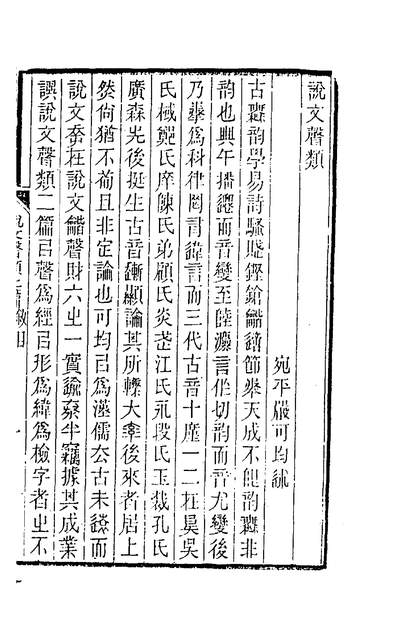 說文聲類
宛平嚴可均述
古無韵學易詩騷賦鏗鎗龤節奏天成不能韵無非
韵也典午播遷而音變至陸灋言作切韵而音尤變後
乃奉為科律罔言而三代古音十廑一二在矣吳
氏棫鄭氏庠陳氏弟顧氏炎武江氏永段氏玉裁孔氏
廣森先後挺生古音漸顯論其所轢大率後來者居上
然尚猶不苟且非定論也可均㠯為漢儒去古未遠而
說文在說文龤聲財六㞢一實踰半竊據其成業
譔說文聲類二篇㠯聲為經㠯形為緯為檢字者㞢不